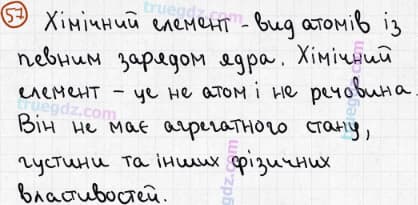 57 Хімічний елемент - вид атомів із
певним зарядом ядра. Хімічний
елемент – це не атом і не речовина.
Він не має агрегатного стану,
густини та інших фізичних
властивостей.
truegdz.com
truegdz.com
truegdz.com
truegdz.com